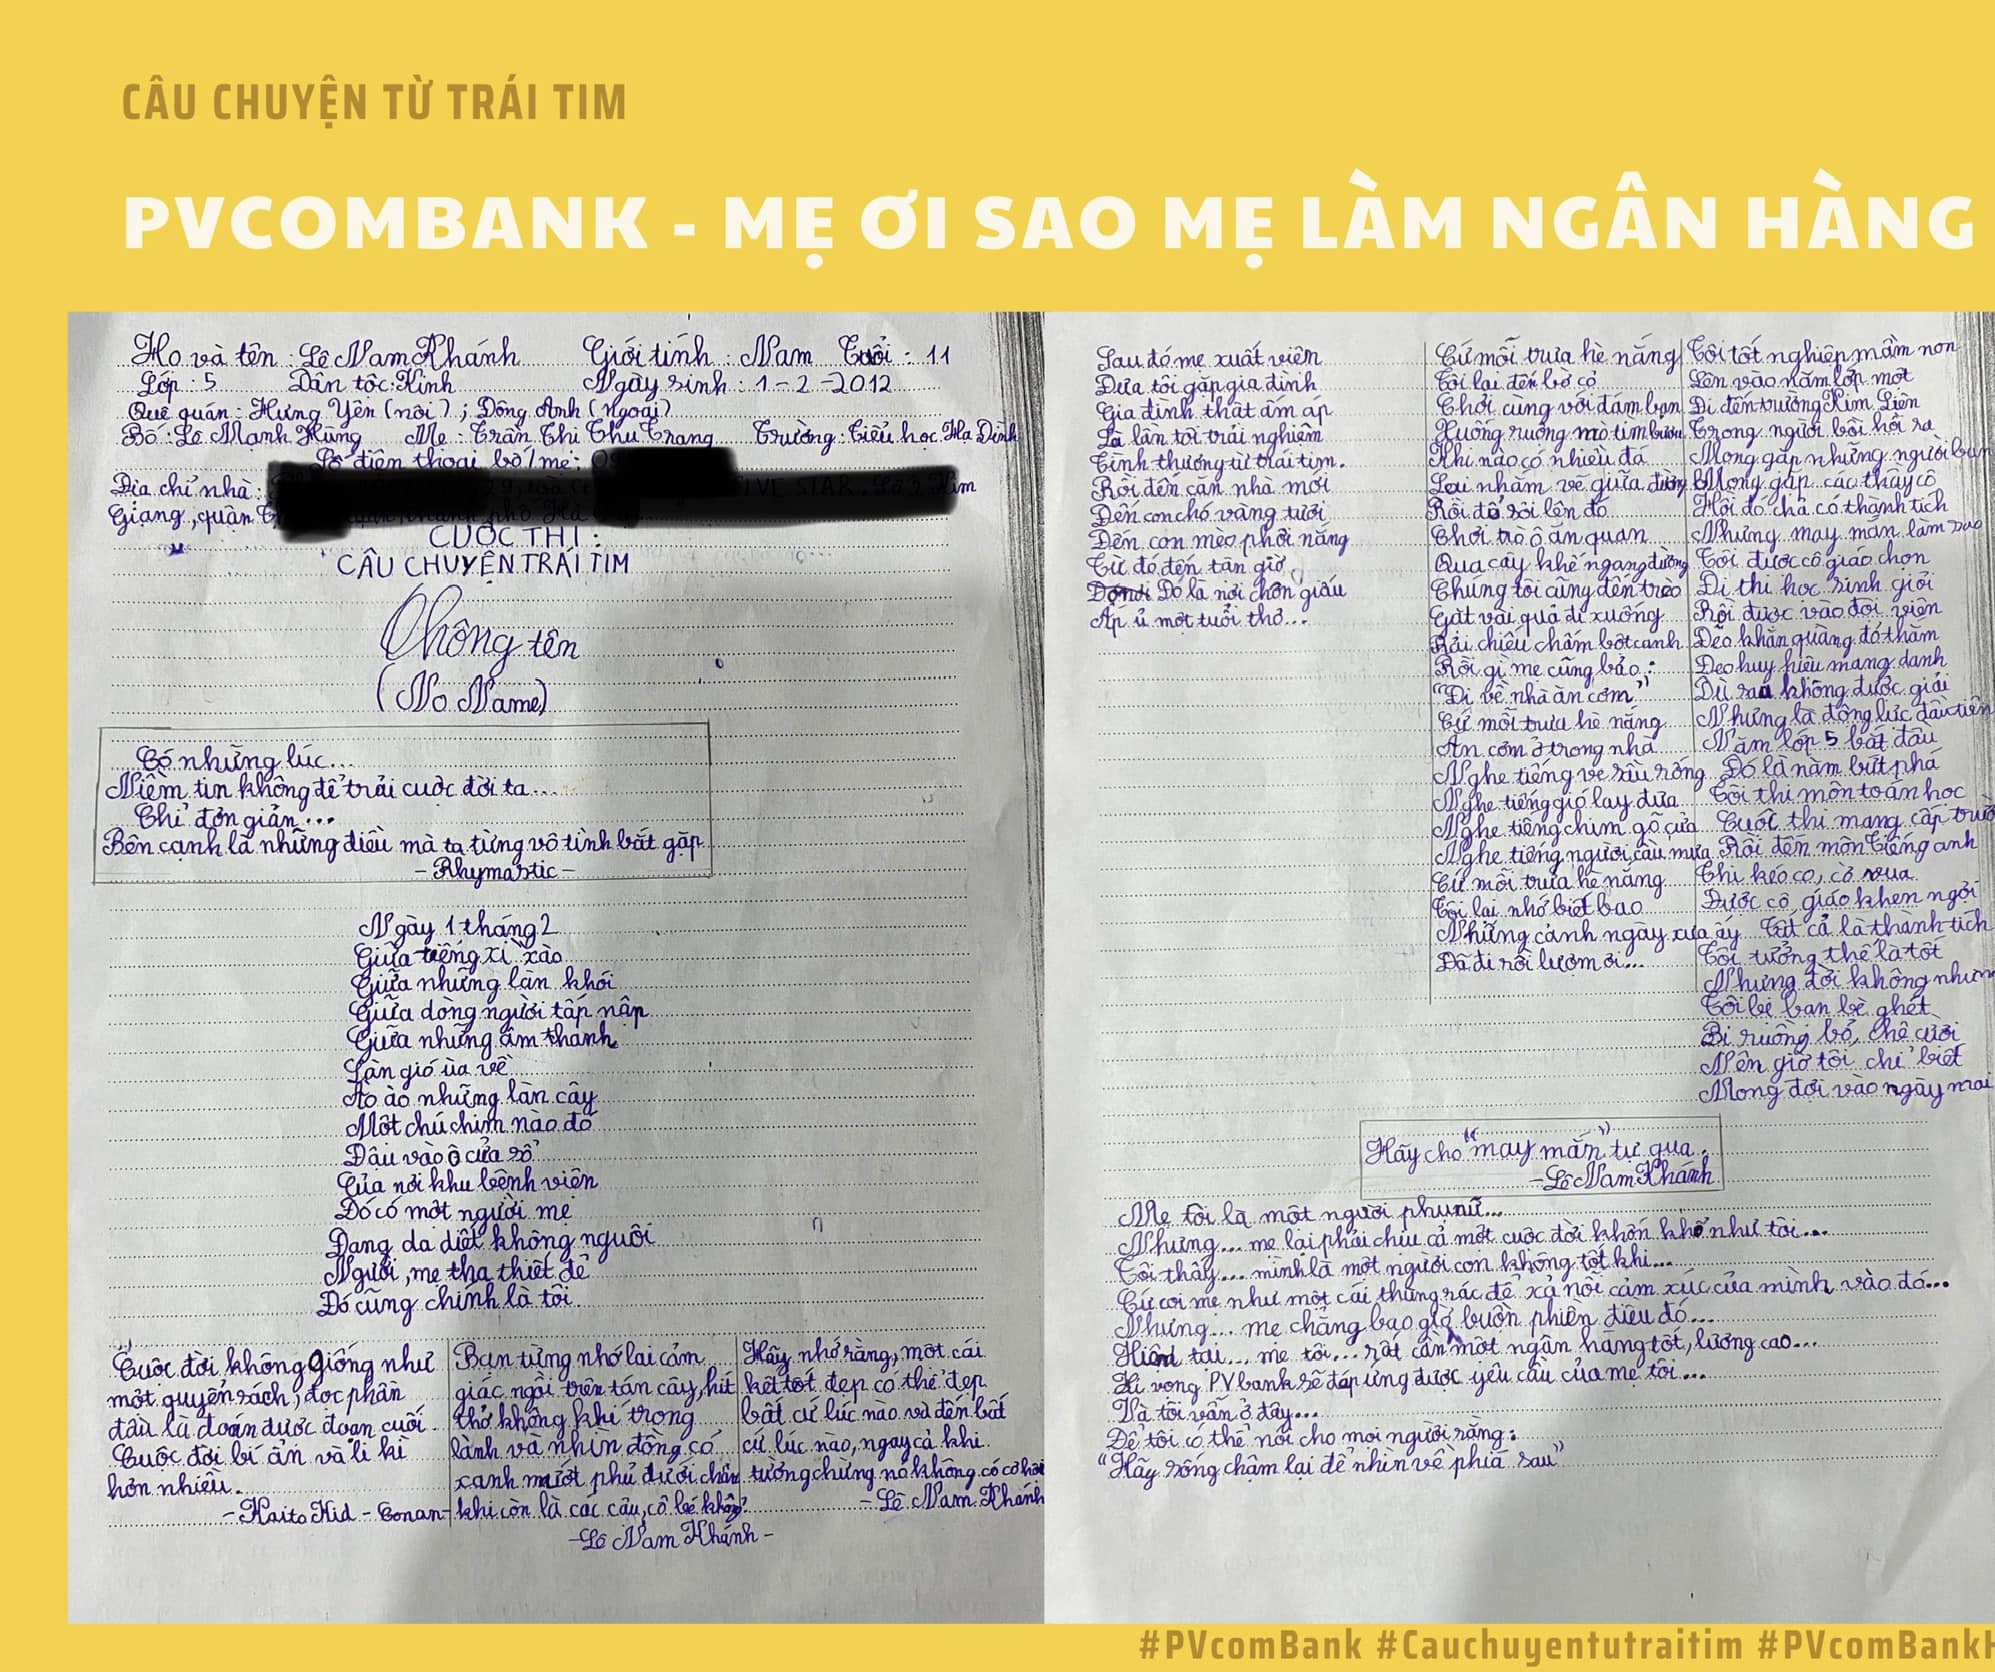 CÂU CHUYỆN TỪ TRÁI TIM
PVCOMBANK - MẸ ƠI SAO MẸ LÀM NGÂN HÀNG
Họ và tên : Lê Nam Khánh Giới tính : Nam Tuổi : 11
Lớp : 5 Dân tộc: Kinh Ngày sinh : 1 - 2 - 2012
Quê quán: Hưng Yên (nội) ; Đông Anh (Ngoại)
Bố : Lê Mạnh Hùng Mẹ : Trần Thị Thu Trang Trường: Tiểu học Hạ Đình
Số điện thoại bố/mẹ:
Địa chỉ nhà : IVE STAR, Số 2 Kim
Giang, quận
CUỘC THI :
CÂU CHUYỆN TRÁI TIM
Không tên
(No Name)
Có những lúc...
Niềm tin không để trải cuộc đời ta...
Chỉ đơn giản...
Bên cạnh là những điều mà ta từng vô tình bắt gặp
- Rhymastic -
Ngày 1 tháng 2
Giữa tiếng xì xào
Giữa những làn khói
Giữa dòng người tấp nập
Giữa những âm thanh
Làn gió ùa về
Ào ào những làn cây
Một chú chim nào đó
Đậu vào ô cửa sổ
Của nơi khu bệnh viện
Đó có một người mẹ
Đang da diết không nguôi
Người mẹ tha thiết đẻ
Đó cũng chính là tôi.
Cuộc đời không giống như
một quyển sách, đọc phần
đầu là đoán được đoạn cuối
Cuộc đời bí ẩn và li kì
hơn nhiều.
- Kaito Kid - Conan -
Bạn từng nhớ lại cảm
giác ngồi trên tán cây, hít
thở không khí trong
lành và nhìn đồng cỏ
xanh mướt phủ dưới chân
khi còn là các cậu, cô bé không?
- Lê Nam Khánh -
Hãy nhớ rằng, một cái
kết tốt đẹp có thể đẹp
bất cứ lúc nào và đến bất
cứ lúc nào, ngay cả khi
tưởng chừng nó không có cơ hội
- Lê Nam Khánh
Sau đó mẹ xuất viện
Đưa tôi gặp gia đình
Gia đình thật ấm áp
Là lần tôi trải nghiệm
Tình thương từ trái tim.
Rồi đến căn nhà mới
Đến con chó vàng tươi
Đến con mèo phơi nắng
Từ đó đến tận giờ
Đó là nơi chôn giấu
Ấp ủ một tuổi thơ...
Cứ mỗi trưa hè nắng
Tôi lại đến bờ cỏ
Chơi cùng với đám bạn
Xuống ruộng mò tìm
Khi nào có nhiều đá
Lại nhằm về giữa đường
Rồi đổ sỏi lên đó
Chơi trò ô ăn quan
Qua cây khế ngang đường
Chúng tôi cũng đến trèo
Gặt vài quả đi xuống
Rải chiếu chấm bột canh
Rồi gì mẹ cũng bảo :
"Đi về nhà ăn cơm"
Cứ mỗi trưa hè nắng
Ăn cơm ở trong nhà
Nghe tiếng ve sầu rống
Nghe tiếng gió lay đưa
Nghe tiếng chim gõ cửa
Nghe tiếng người cầu mưa
Cứ mỗi trưa hè nắng
Tôi lại nhớ biết bao
Những cảnh ngày xưa ấy
Đã đi rồi lượm ơi...
Tôi tốt nghiệp mầm non
Lên vào năm lớp một
Đi đến trường Kim Liên
Trong người bồi hồi ra
Mong gặp những người bạn
Mong gặp các thầy cô
Hồi đó chả có thành tích
Nhưng may mắn làm sao
Tôi được cô giáo chọn
Đi thi học sinh giỏi
Rồi được vào đội viên
Đeo khăn quàng đỏ thắm
Đeo huy hiệu mang danh
Dù sau không được giải
Nhưng là động lực đầu tiên
Năm lớp 5 bắt đầu
Đó là năm bứt phá
Tôi thi môn toán học
Cuộc thi mang cấp trườ
Rồi đến môn tiếng anh
Thi kéo co, cờ vua
Được cô giáo khen ngợi
Tất cả là thành tích
Tôi tưởng thế là tốt
Nhưng đời không như
Tôi bị bạn bè ghét
Bị ruồng bỏ, chê cười
Nên giờ tôi chỉ biết
Mong đợi vào ngày mai
Hãy cho "may mắn" tự qua.
- Lê Nam Khánh
Mẹ tôi là một người phụ nữ...
Nhưng... mẹ lại phải chịu cả một cuộc đời khốn khổ như tôi...
Tôi thấy... mình là một người con không tốt khi...
Cứ coi mẹ như một cái thùng rác để xả nỗi cảm xúc của mình vào đó...
Nhưng... mẹ chẳng bao giờ buồn phiền điều đó...
Hiện tại... mẹ tôi... rất cần một ngân hàng tốt, lương cao...
Hi vọng PVbank sẽ đáp ứng được yêu cầu của mẹ tôi...
Và tôi vẫn ở đây...
Để tôi có thể nói cho mọi người rằng:
"Hãy sống chậm lại để nhìn về phía sau"
#PVcomBank #Cauchuyentutraitim #PVcomBankH